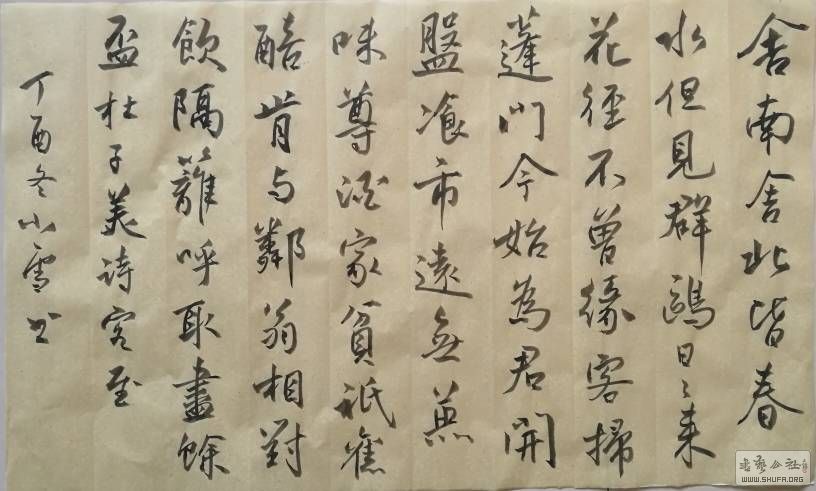 舍南舍北皆春
水但見群鷗日〻来
花徑不曾緣客掃
蓬門今始為君開
盤飧市遠無兼
味尊酒家貧祇舊
醅肯与鄰翁相對
飲隔籬呼取盡餘
盃杜子美詩客至
丁酉冬小雪书
書藝公社
WWW.SHUFA.ORG